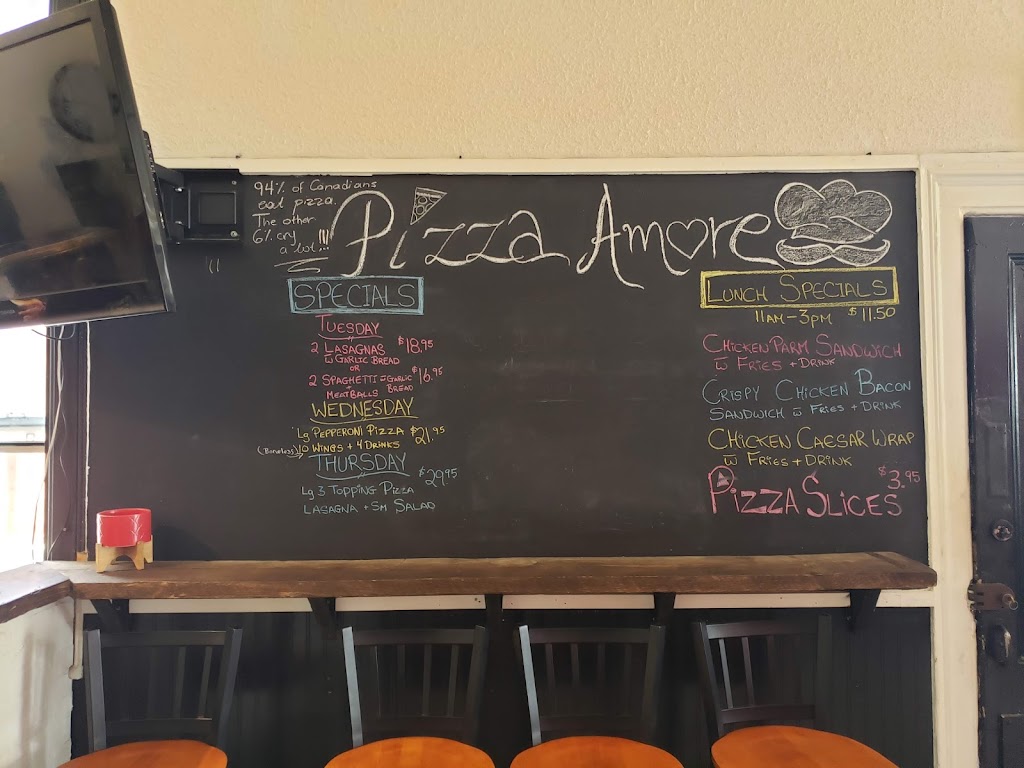 94% of Canadians
eat pizza.
The other
6% cry
a lot...!!!
Pizza Amore
SPECIALS
TUESDAY
2 LASAGNAS $18.95
w GARLIC BREAD
OR
2 SPAGHETTI = GARLIC BREAD $16.95
+ MEATBALLS
WEDNESDAY
Lg PEPPERONI PIZZA $21.95
(Boneless) 10 WINGS + 4 DRINKS
THURSDAY
$29.95
Lg 3 TOPPING PIZZA
LASAGNA + SM SALAD
LUNCH SPECIALS
11AM-3PM $11.50
CHICKEN PARM SANDWICH
w FRIES + DRINK
CRISPY CHICKEN BACON
SANDWICH w FRIES + DRINK
CHICKEN CAESAR WRAP
w FRIES + DRINK
$3.95
PIZZA SLICES